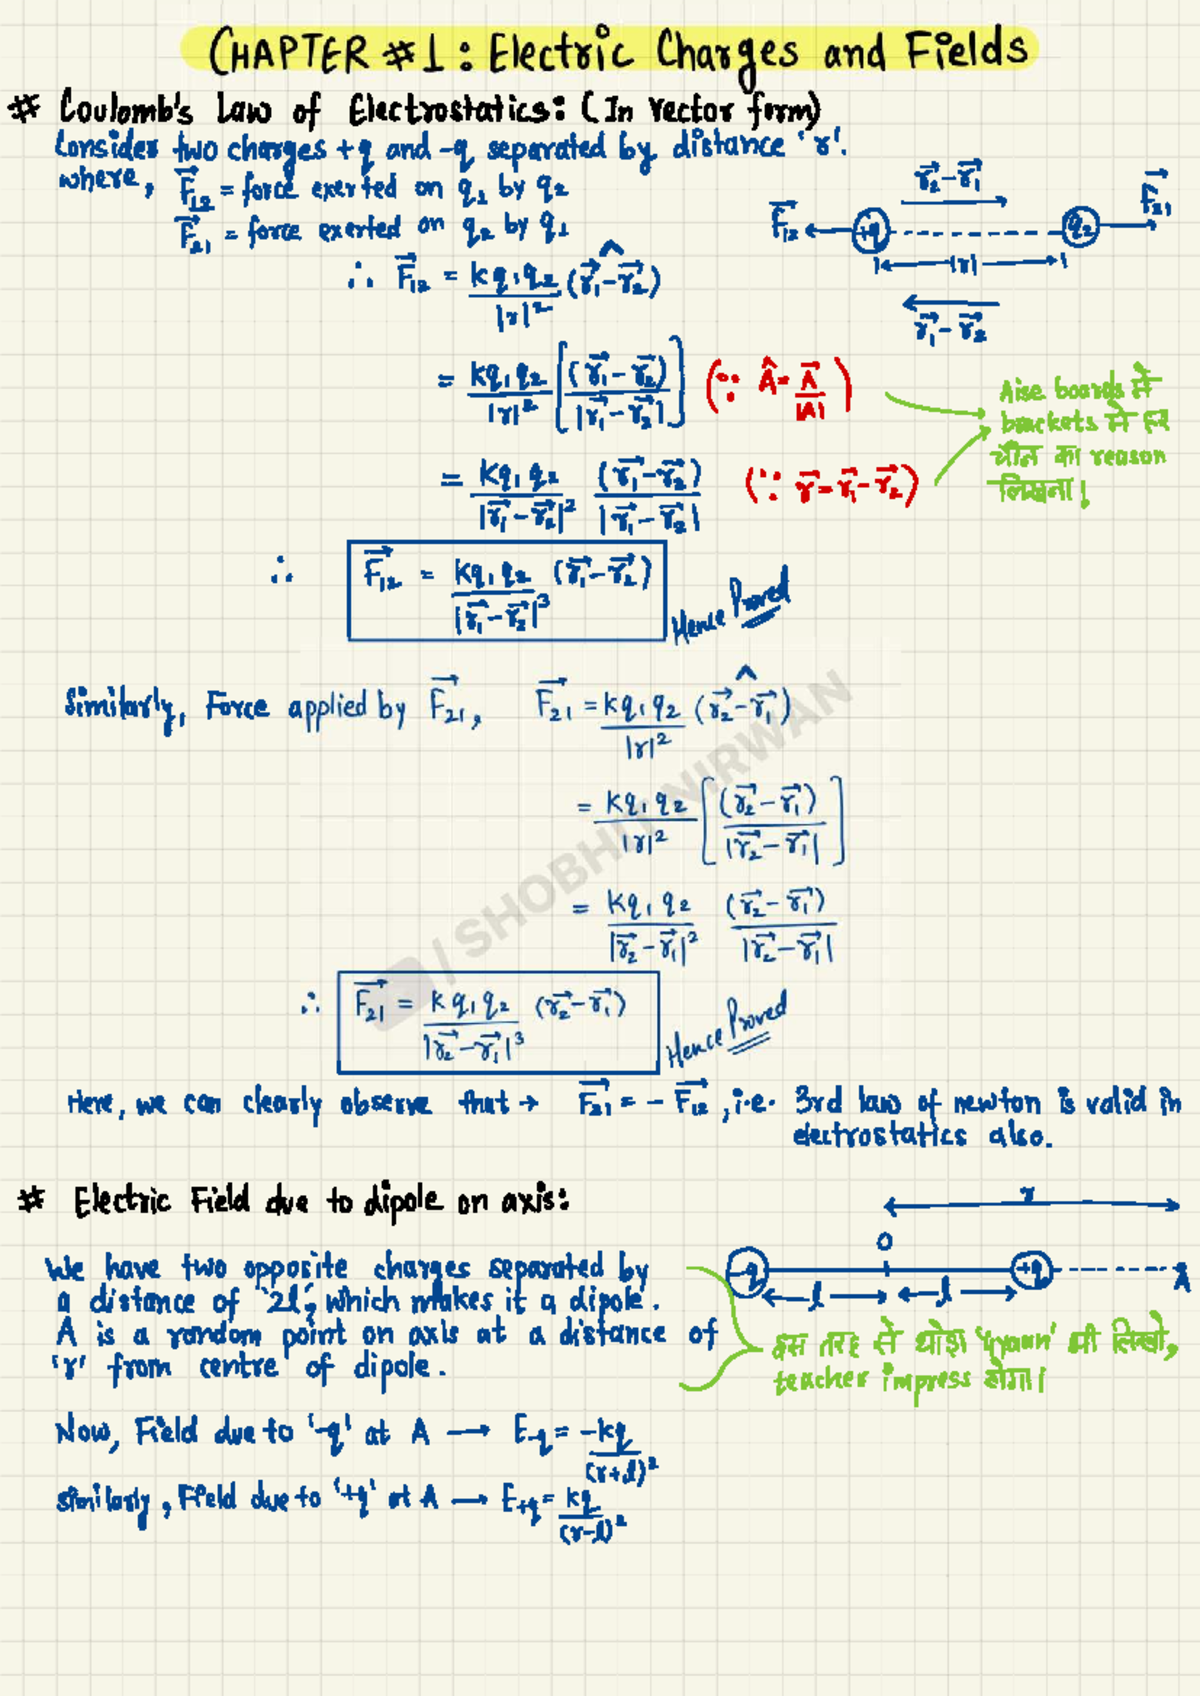 CHAPTER #1: Electric Charges and Fields
# Coulomb's Law of Electrostatics: (In vector form)
Consider two charges +q and -q separated by distance 'r'.
where, F⃗₁₂ = force exerted on q₁ by q₂
F⃗₂₁ = force exerted on q₂ by q₁
r⃗₂-r⃗₁
F⃗₁₂ +q q₂ F⃗₂₁
|r|
r⃗₁-r⃗₂
∴ F⃗₁₂ = kq₁q₂/|r|² (r⃗₁-r⃗₂)^
= kq₁q₂/|r|² [(r⃗₁-r⃗₂)/|r⃗₁-r⃗₂|] (∵ Â = A⃗/|A|)
= kq₁q₂/|r⃗₁-r⃗₂|² (r⃗₁-r⃗₂)/|r⃗₁-r⃗₂| (∵ r⃗ = r⃗₁-r⃗₂)
Aise boards में
brackets में हर
चीज का reason
लिखना!
∴ F⃗₁₂ = kq₁q₂/|r⃗₁-r⃗₂|³ (r⃗₁-r⃗₂)
Hence Proved
Similarly, Force applied by F⃗₂₁, F⃗₂₁ = kq₁q₂/|r|² (r⃗₂-r⃗₁)^
= kq₁q₂/|r|² [(r⃗₂-r⃗₁)/|r⃗₂-r⃗₁|]
= kq₁q₂/|r⃗₂-r⃗₁|² (r⃗₂-r⃗₁)/|r⃗₂-r⃗₁|
∴ F⃗₂₁ = kq₁q₂/|r⃗₂-r⃗₁|³ (r⃗₂-r⃗₁)
Hence Proved
/ SHOBHIT NIRWAN
Here, we can clearly observe that → F⃗₂₁ = - F⃗₁₂, i.e. 3rd law of newton is valid in
electrostatics also.
# Electric Field due to dipole on axis:
r
O
-q +q A
l l
We have two opposite charges separated by
a distance of '2l', which makes it a dipole.
A is a random point on axis at a distance of
'r' from centre of dipole.
इस तरह से थोड़ा 'gyaan' भी लिखो,
teacher impress होगा।
Now, Field due to '-q' at A → E₋q = -kq/(r+l)²
similarly, Field due to '+q' at A → E₊q = kq/(r-l)²